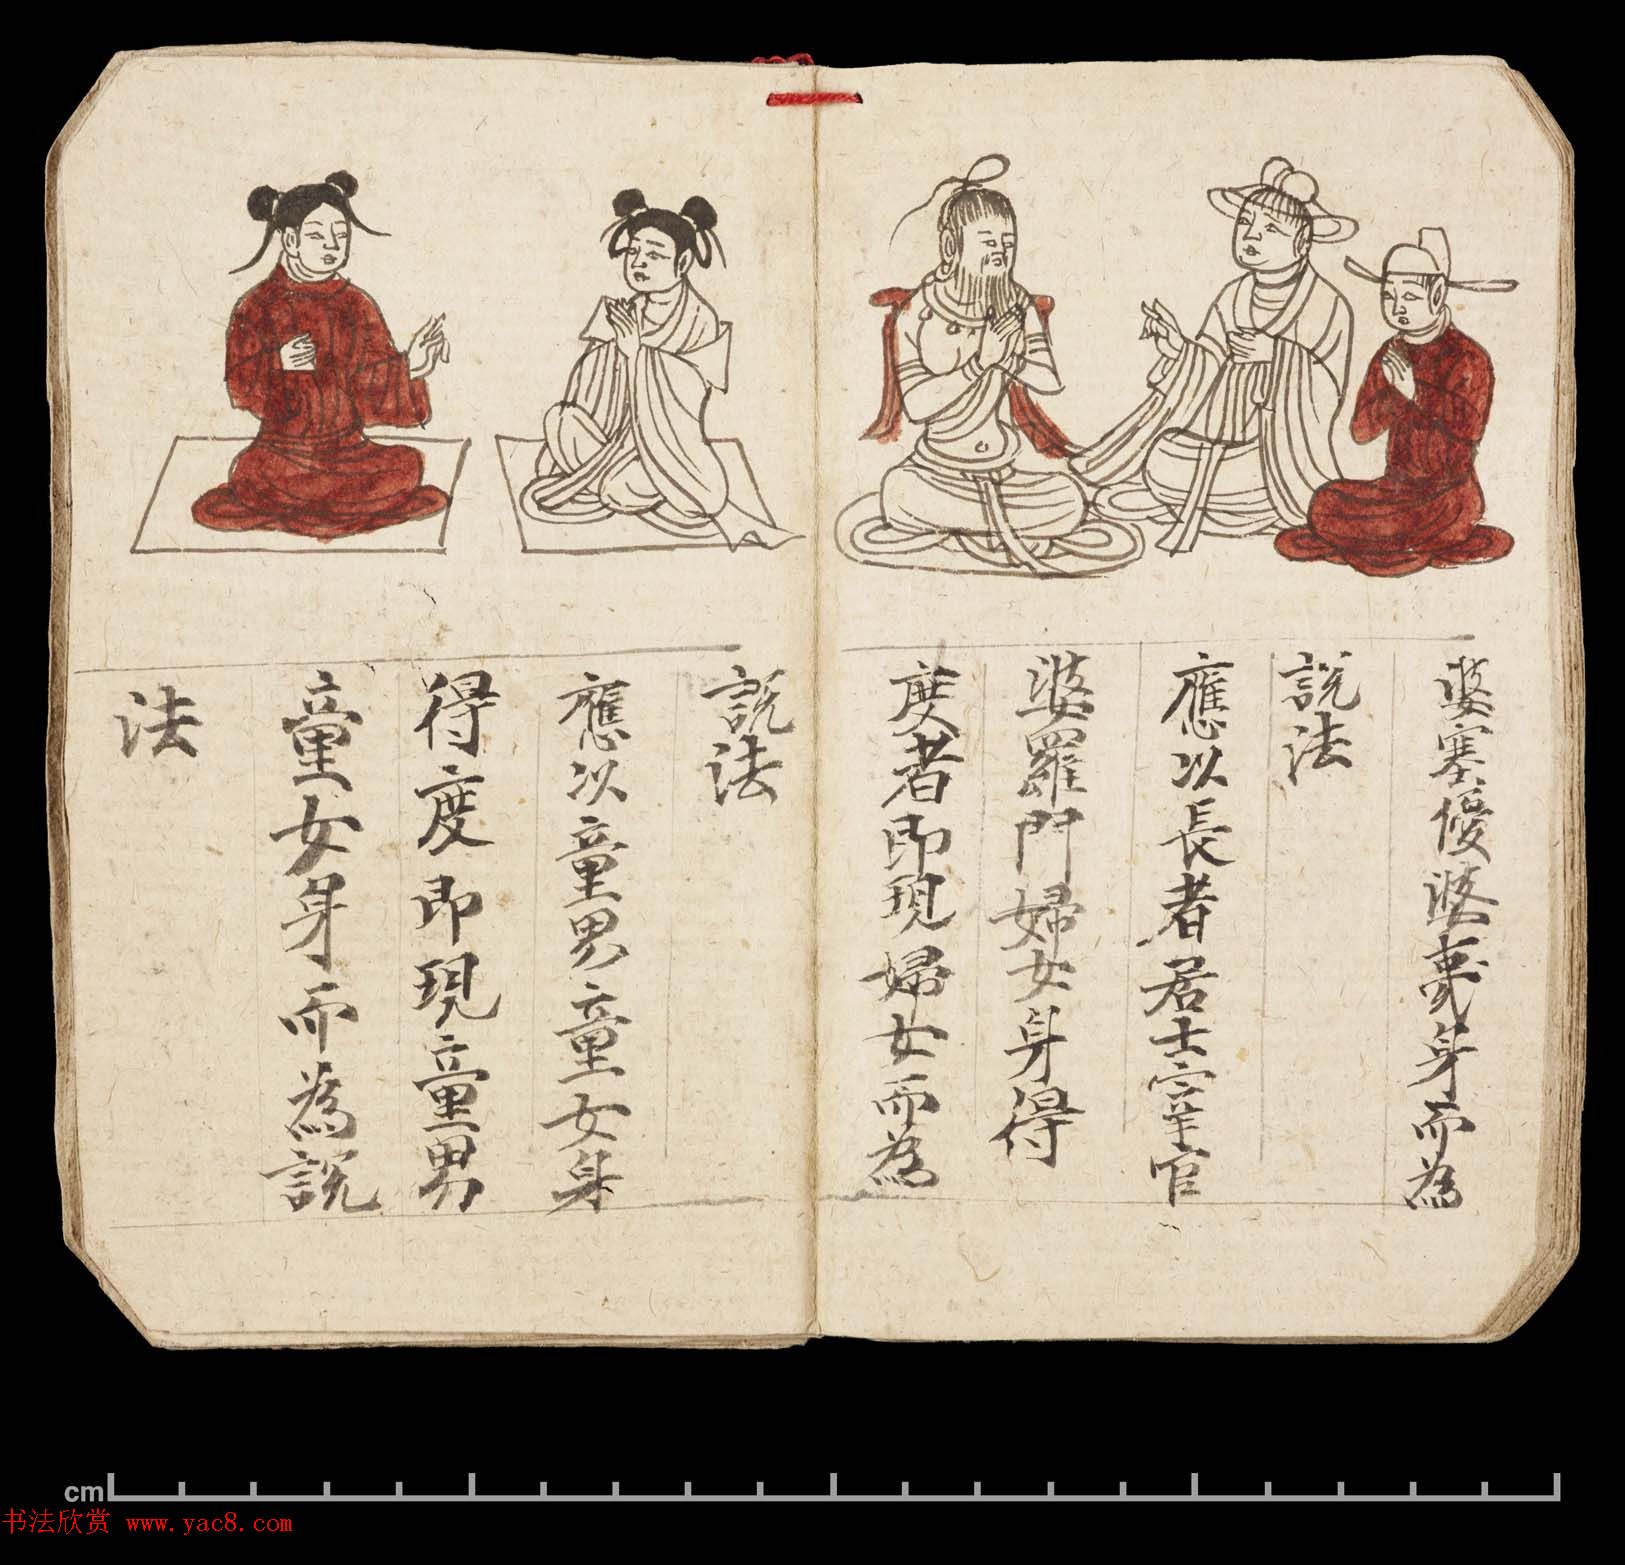 婆塞優婆夷身而為
說法
應以長者居士宰官
婆羅門婦女身得
度者即現婦女而為
說法
應以童男童女身
得度即現童男
童女身而為說
法
cm
书法欣赏 www.yac8.com